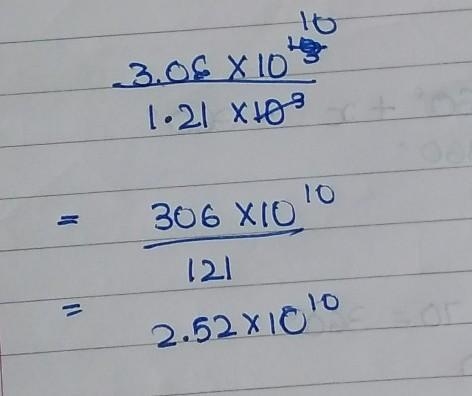 10
3.06 × 10
1.21 × 10³
= 306 × 10¹⁰
121
= 2.52 × 10¹⁰